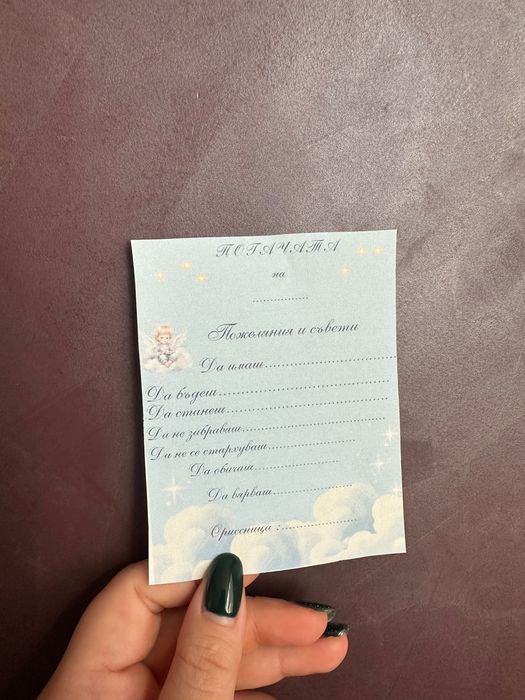 ПОГАЧАТА
на
................
Пожелиния и съвети
Да имаш.................................
Да бъдеш...........................................
Да станеш.........................................
Да не забраваш....................................
Да не се стархуваш......................
Да обичаш.....................
Да вярваш....................
Орисница :...................